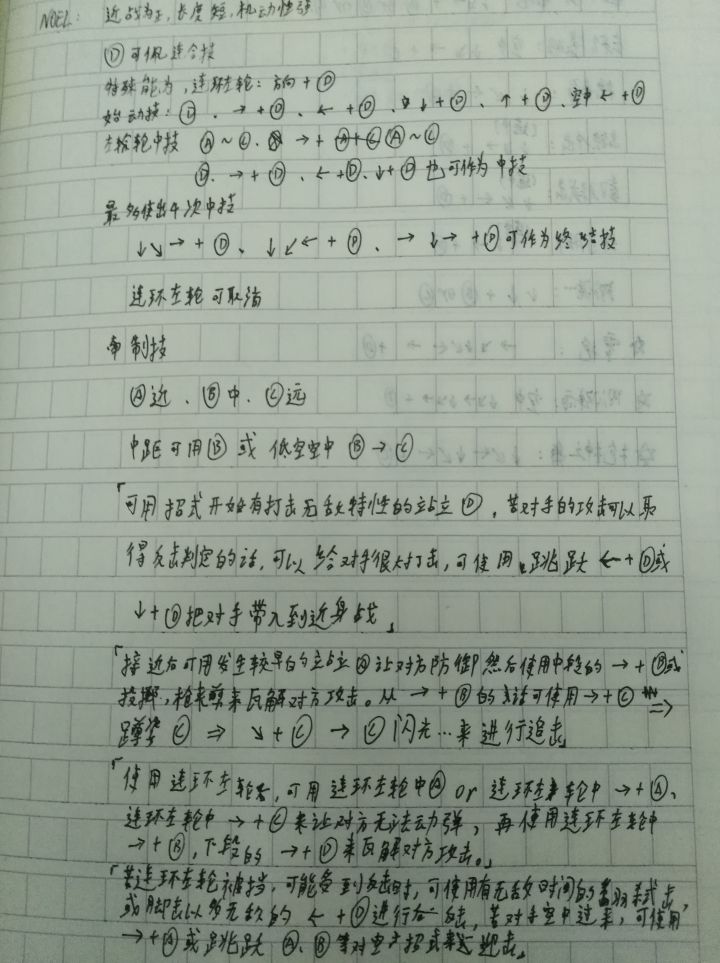 NOEL: 近战为主,长度短,机动性强
Ⓓ可佩连合技
特殊能力,连环左轮:方向+Ⓓ
始动技:Ⓓ、→+Ⓓ、←+Ⓓ、↓+Ⓓ、↑+Ⓓ、空中←+Ⓓ
左轮中技 Ⓐ~Ⓒ、→+Ⓐ~Ⓒ
Ⓓ、→+Ⓓ、←+Ⓓ、↓+Ⓓ也可作为中技
最多使出4次中技
↓↘→+Ⓓ、↓↙←+Ⓓ、→↓→+Ⓓ可作为终结技
连环左轮可取消
牵制技
Ⓐ近、Ⓑ中、Ⓒ远
中距可用Ⓑ或 低空空中Ⓑ→Ⓒ
「可用招式开始有打击无敌特性的站立Ⓓ,若对手的攻击可以取
得反击判定的话,可以给对手很大打击,可使用跳跃←+Ⓓ或
↓+Ⓓ把对手带入到近身战」
「接近后可用发生较早的站立Ⓐ让对方防御然后使用中段的→+Ⓑ或
投掷,来瓦解对方攻击。从→+Ⓑ的话可使用→+Ⓒ⇒
蹲姿Ⓒ⇒↘+Ⓒ→Ⓒ闪光…来进行追击」
「使用连环左轮后,可用连环左轮中Ⓐor连环左轮中→+Ⓐ、
连环左轮中→+Ⓒ来让对方无法动弹,再使用连环左轮中
→+Ⓑ,下段的→+Ⓓ来瓦解对方攻击。」
「若连环左轮被挡,可能受到反击时,可使用有无敌时间的
或脚击以为无敌的←+Ⓓ进行反击,若对手空中过来,可使用
→+Ⓐ或跳跃Ⓐ、Ⓑ等对空招式来迎击」